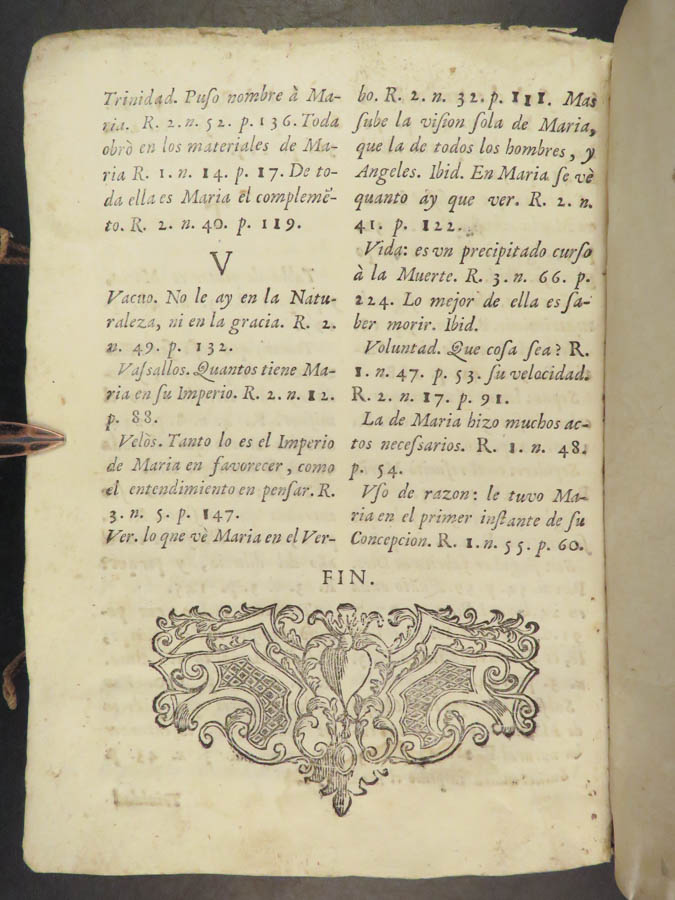 Trinidad. Puſo nombre à Ma-
ria. R. 2. n. 52. p. 136. Toda
obrò en los materiales de Ma-
ria R. 1. n. 14. p. 17. De to-
da ella es Maria el complemẽ-
to. R. 2. n. 40. p. 119.
V
Vacuo. No le ay en la Natu-
raleza, ni en la gracia. R. 2.
n. 49. p. 132.
Vaſſallos. Quantos tiene Ma-
ria en ſu Imperio. R. 2. n. 12.
p. 88.
Velòs. Tanto lo es el Imperio
de Maria en favorecer, como
el entendimiento en penſar. R.
3. n. 5. p. 147.
Ver. lo que vè Maria en el Ver-
bo. R. 2. n. 32. p. 111. Mas
ſube la viſion ſola de Maria,
que la de todos los hombres, y
Angeles. Ibid. En Maria ſe vè
quanto ay que ver. R. 2. n.
41. p. 122.
Vida: es vn precipitado curſo
à la Muerte. R. 3. n. 66. p.
224. Lo mejor de ella es ſa-
ber morir. Ibid.
Voluntad. Que coſa ſea? R.
1. n. 47. p. 53. ſu velocidad.
R. 2. n. 17. p. 91.
La de Maria hizo muchos ac-
tos neceſſarios. R. 1. n. 48.
p. 54.
Vſo de razon: le tuvo Ma-
ria en el primer inſtante de ſu
Concepcion. R. 1. n. 55. p. 60.
FIN.